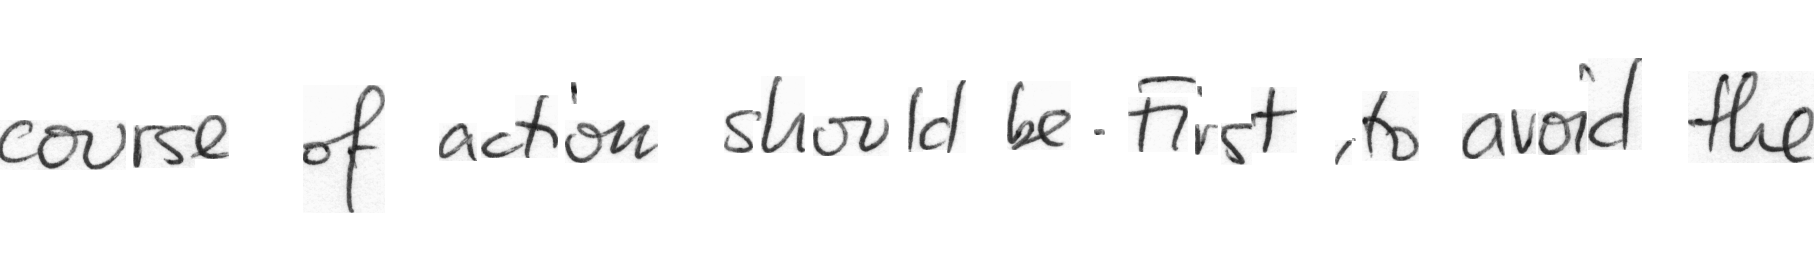 course of action should be. First, to avoid the